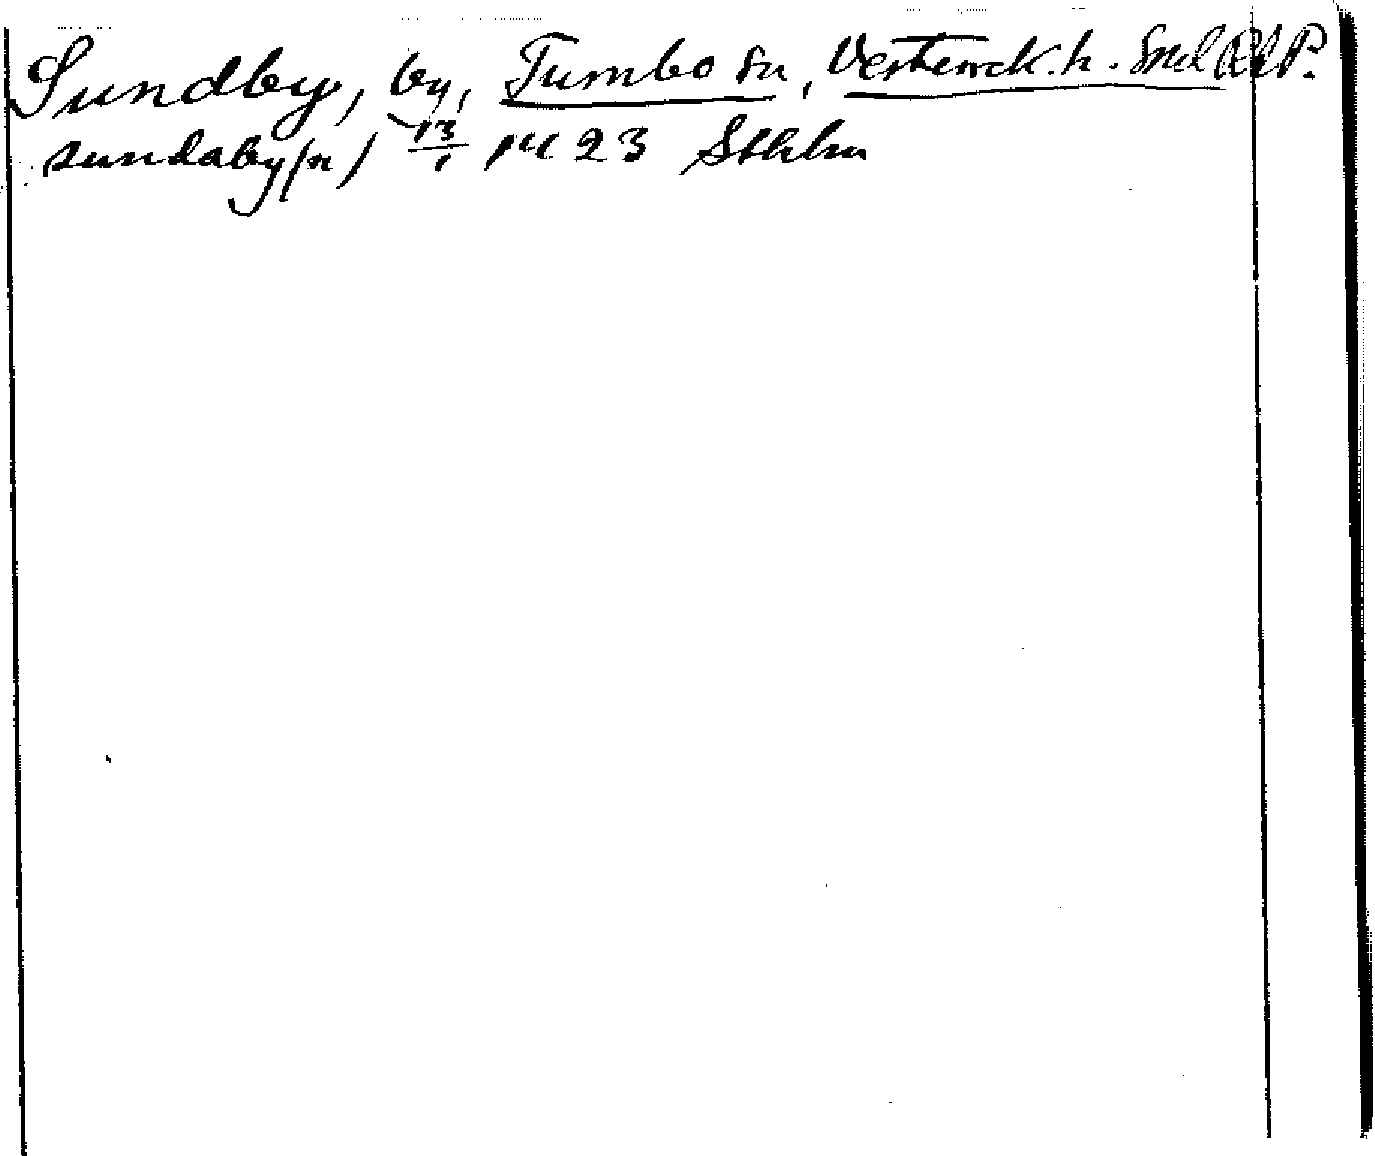 Sundby, by, Tumbo sn, Västerrek. h. Sml RAP.
sundaby(n) 13/1 1423 Sthlm